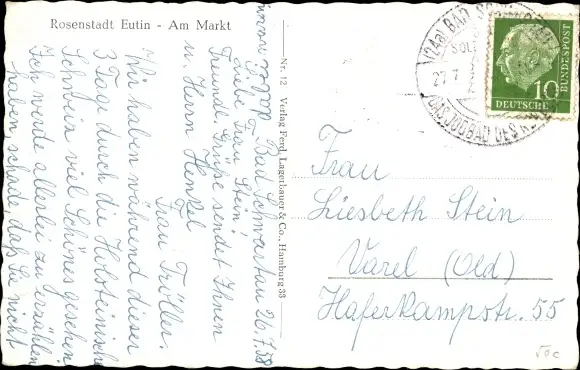 Rosenstadt Eutin - Am Markt
Bad Schwartau 26.7.58
Liebe Frau Stein!
Freundl. Grüße sendet Ihnen
u. Herrn Henkel
Frau Tröller.
Wir haben während dieser
3 Tage durch die Holsteinische
Schweiz viel Schönes gesehen
Ich werde allerlei zu erzählen
haben, schade daß Sie nicht
Nr. 12 Verlag Ferd. Lagerbauer & Co., Hamburg 33
(24a) BAD
27.7
DEUTSCHE
BUNDESPOST
10
Frau
Liesbeth Stein
Varel (Old)
Haferkampstr. 55
50c